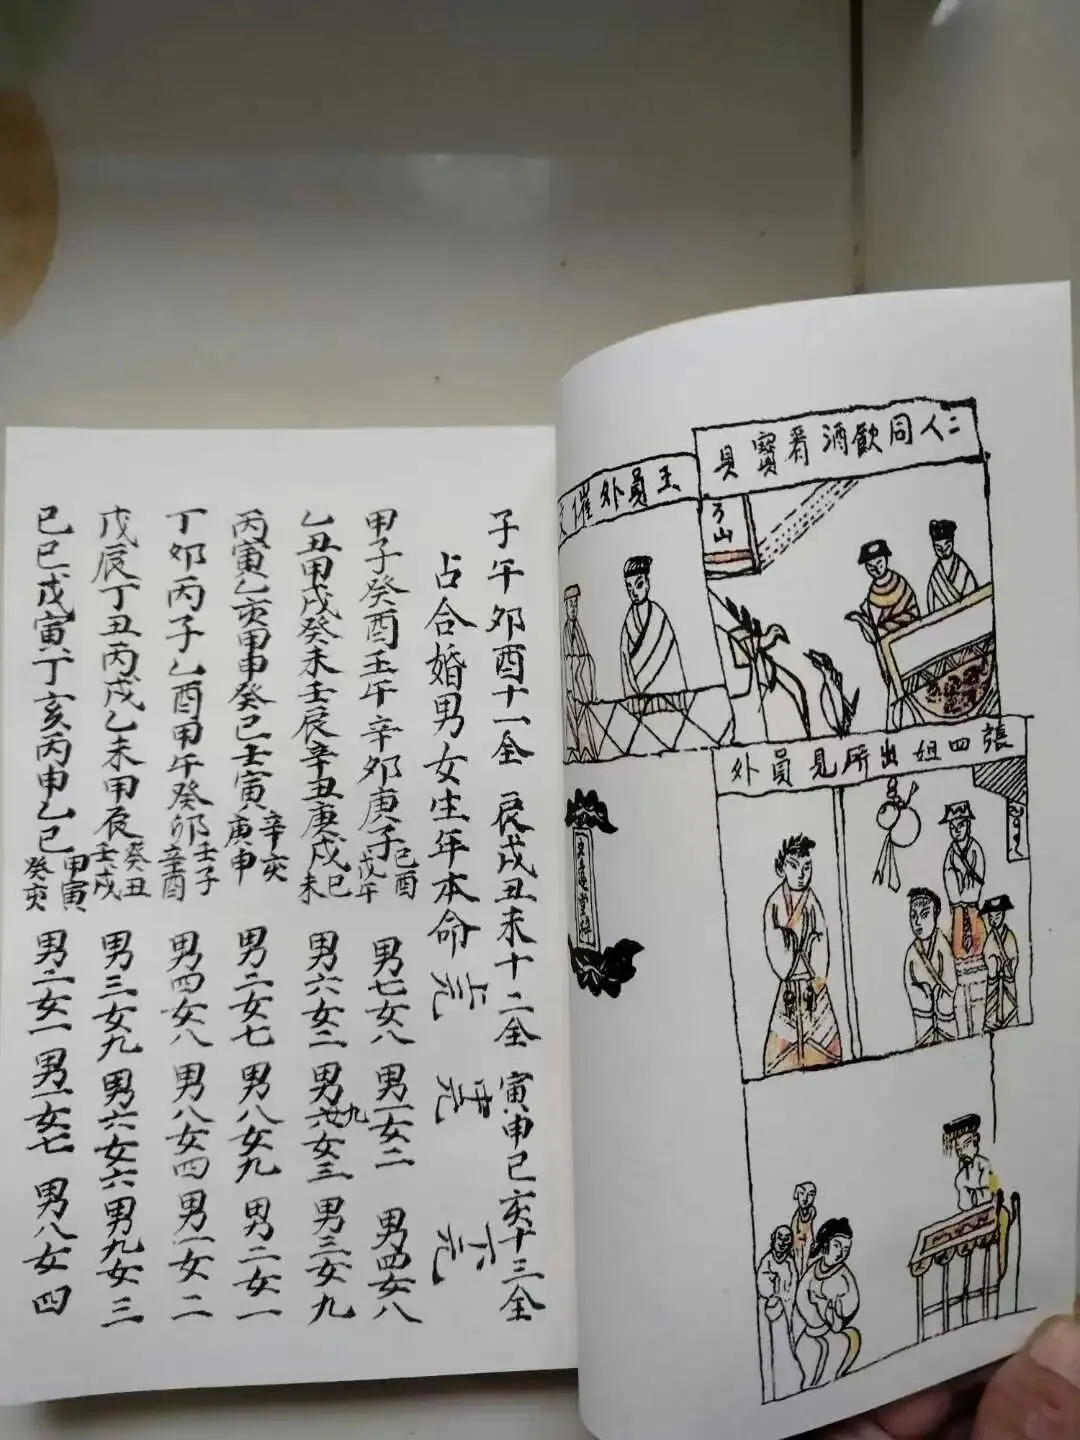 二人同飲酒看寶貝
王員外催
張四姐出所見員外
子午卯酉十一全 辰戌丑未十二全 寅申巳亥十三全
占合婚男女生年本命 上元 中元 下元
甲子癸酉壬午辛卯庚子己酉戊午 男七女八 男一女二 男四女八
乙丑甲戌癸未壬辰辛丑庚戌己未 男六女二 男九女三 男三女九
丙寅乙亥甲申癸巳壬寅辛亥庚申 男二女七 男八女九 男二女一
丁卯丙子乙酉甲午癸卯壬子辛酉 男四女八 男八女四 男一女二
戊辰丁丑丙戌乙未甲辰癸丑壬戌 男三女九 男六女六 男九女三
己巳戊寅丁亥丙申乙巳甲寅癸亥 男二女一 男一女七 男八女四